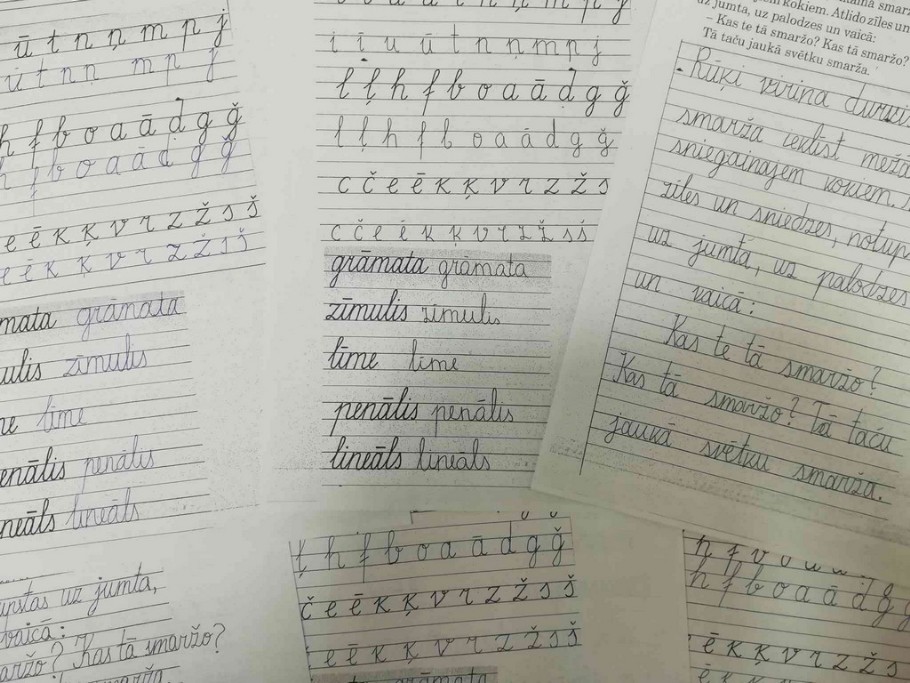 ū t n ņ m p j
ū t n ņ m p j
h f b o a ā d g ģ
h f b o a ā d g ģ
e ē k ķ v r z ž s š
e ē k ķ v r z ž s š
mata grāmata
ulis zīmulis
me līme
enālis penālis
neāls lineāls
i ī u ū t n ņ m p j
l ļ h f b o a ā d g ģ
l ļ h f b o a ā d g ģ
c č e ē k ķ v r z ž s
c č e ē k ķ v r z ž s š
grāmata grāmata
zīmulis zīmulis
līme līme
penālis penālis
lineāls lineāls
kokiem. Atlido zīles un
uz jumta, uz palodzes un vaicā:
– Kas te tā smaržo? Kas tā smaržo?
Tā taču jaukā svētku smarža.
Rūķi virina durvis
smarža
sniegainajem kokiem.
zīles un sniedzes, notup
uz jumta, uz palodzes
un vaicā:
Kas te tā smaržo?
Kas tā smaržo? Tā taču
jaukā svētku smarža.
uz jumta,
vaicā:
aržo? Kas tā smaržo?
smarža
ļ h f b o a ā d g ģ
č e ē k ķ v r z ž s š
e ē k ķ v r z ž s š
grāmata
h f b o a ā d g ģ
ē k ķ v r z ž s